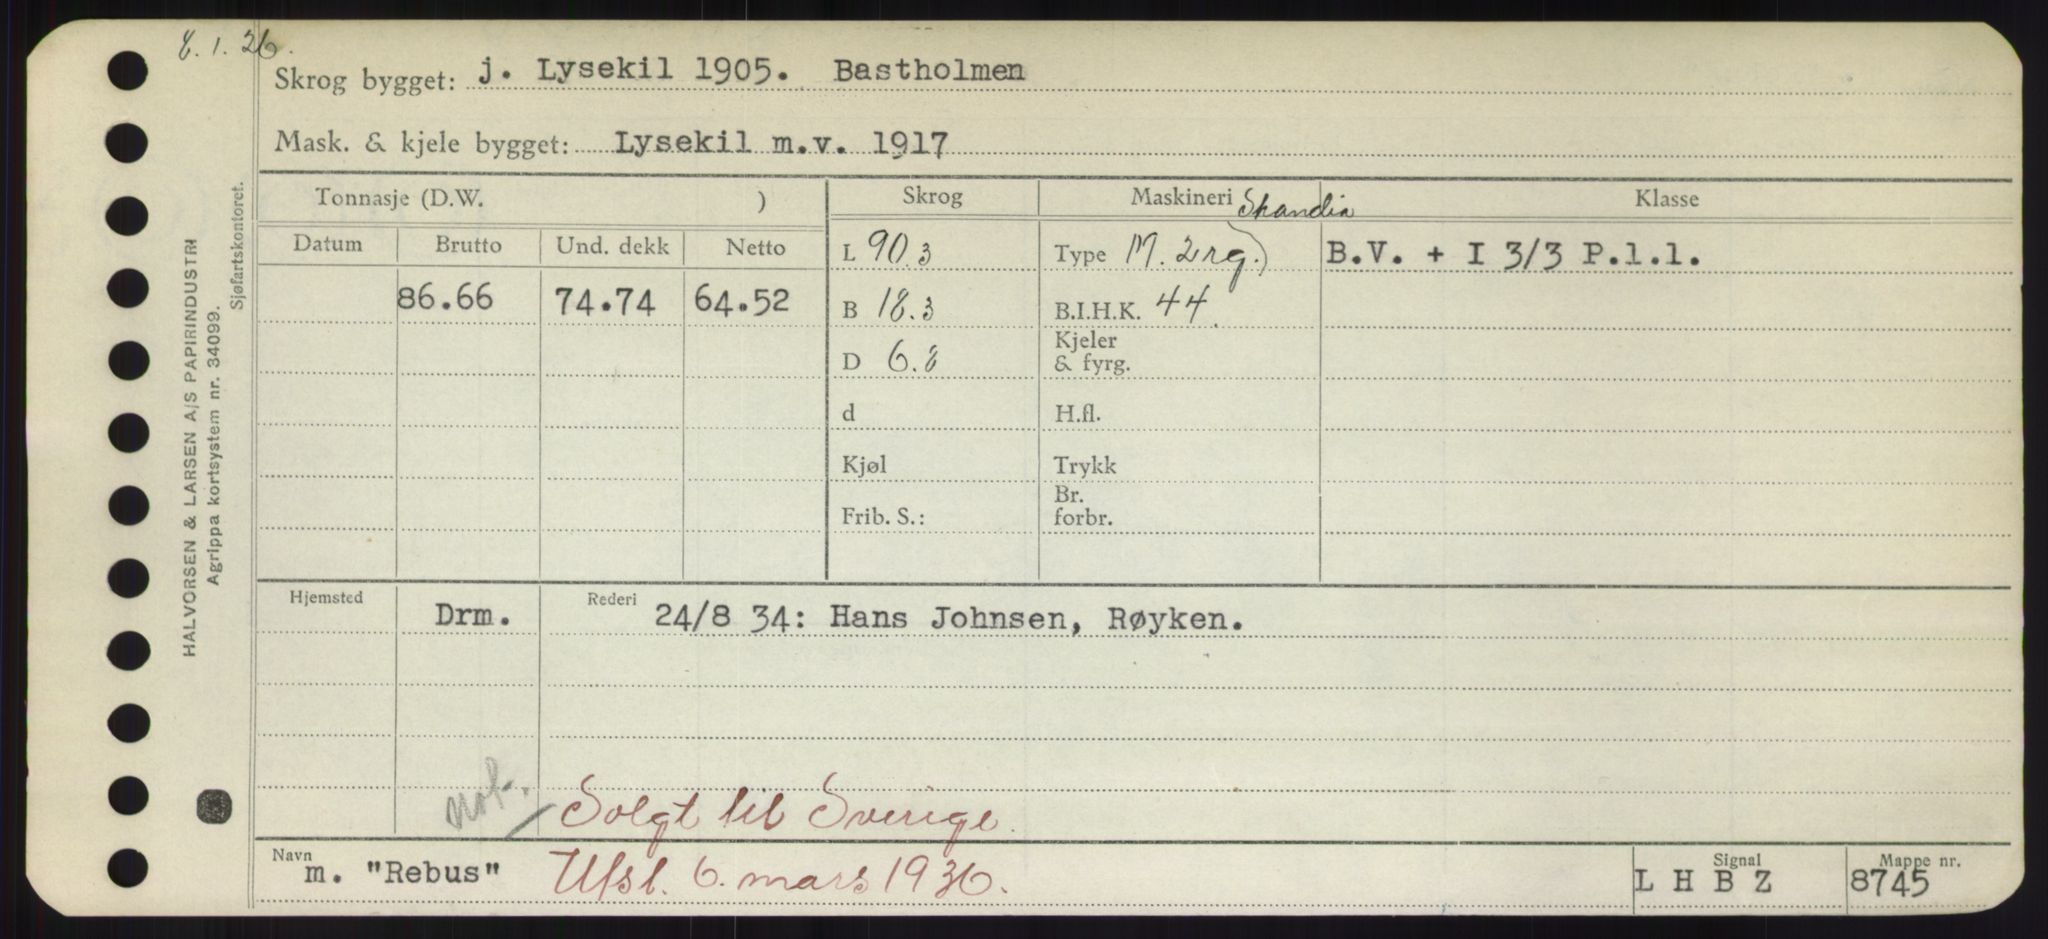 8.1.26.
Skrog bygget: j. Lysekil 1905. Bastholmen
Mask. & kjele bygget: Lysekil m.v. 1917
Tonnasje (D.W. ) Skrog Maskineri Skandia Klasse
Datum Brutto Und. dekk Netto L 90.3 Type M. 2rg.) B.V. + I 3/3 P.l.l.
86.66 74.74 64.52 B 18.3 B.I.H.K. 44
D 6.8 Kjeler & fyrg.
d H.fl.
Kjøl Trykk
Frib. S.: Br. forbr.
Hjemsted Drm. Rederi 24/8 34: Hans Johnsen, Røyken.
not. Solgt til Sverige.
Navn m. "Rebus" Utsl. 6. mars 1936. Signal L H B Z Mappe nr. 8745
HALVORSEN & LARSEN A/S PAPIRINDUSTRI
Agrippa kortsystem nr. 34099.
Sjøfartskontoret.